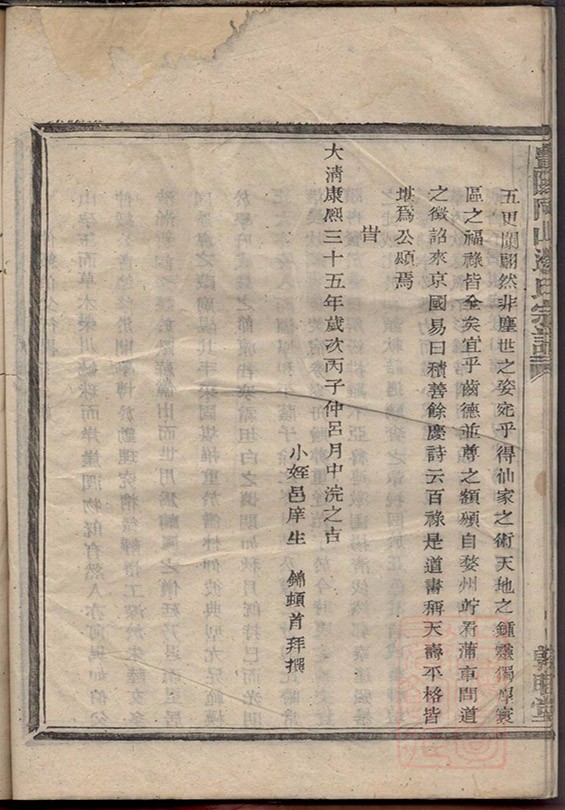 五更闌翩然非塵世之姿宛乎得仙家之術天地之鍾靈獨厚寰
區之福祿皆全矣宜乎齒德並尊之額頒自婺州竚看蒲車問道
之徵詔來京國易曰積善餘慶詩云百祿是道書稱天壽平格皆
堪為公頌焉
旹
大清康熙三十五年歲次丙子仲呂月中浣之吉
小姪邑庠生 錦頓首拜撰
氏宗譜
敦睦堂